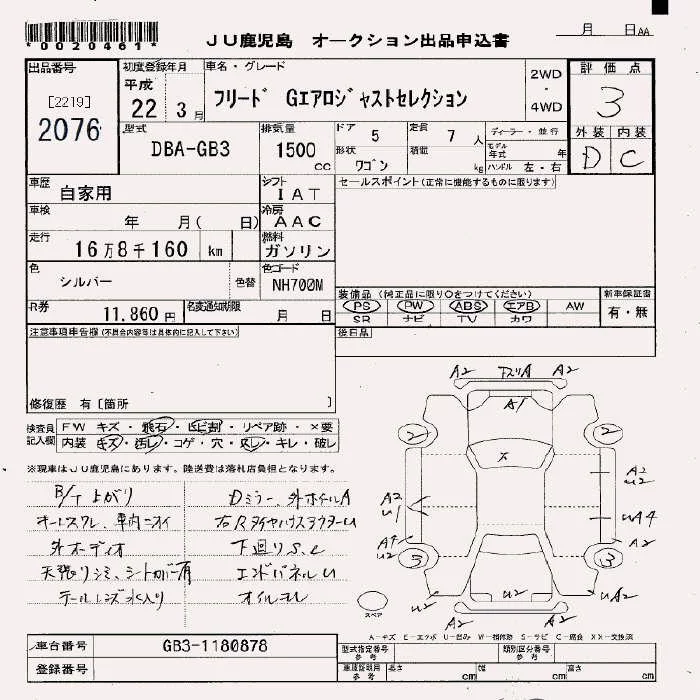 *0020461*
JU鹿児島 オークション出品申込書
月 日AA
出品番号
[2219]
2076
初度登録年月
平成
22 3月
車名・グレード
フリード Gエアロジャストセレクション
2WD
・
4WD
評価点
3
外装 内装
D C
型式
DBA-GB3
排気量
1500
cc
ドア 5
定員 7 人
形状
ワゴン
積載 kg
ディーラー・並行
モデル年式 年
ハンドル 左・右
車歴
自家用
シフト
IAT
セールスポイント(正常に機能するものに限ります)
車検
年 月( 日)
冷房
AAC
走行
16万8千160 km
燃料
ガソリン
色
シルバー
色替
色コード
NH700M
R券
11,860 円
名変通知期限
月 日
装備品(純正品に限り○をつけてください)
PS PW ABS エアB AW
SR ナビ TV カワ
新車保証書
有・無
後日品
注意事項車告欄(不具合内容等は具体的に記入して下さい)
修復歴 有[箇所 ]
検査員記入欄
FW キズ・飛石・ヒビ割・リペア跡・×要
内装 キズ・汚レ・コゲ・穴・スレ・キレ・破レ
※現車はJU鹿児島にあります。陸送費は落札店負担となります。
B/T上がり
Dミラー、外ホイルA
車内ニオイ
外オーディオ
下廻りS.C
天張りシミ、
エンドパネルU
テールレンズ水入り
オイルモレ
A2 A2
A1
2 2
X
A2
U1
A2
U2
UA4
A2
3 3
U2 U2 UA2
A2 A2
スペア
A-キズ E-エクボ U-凹み W-補修跡 S-サビ C-腐食 XX-交換済
車台番号
GB3-1180878
登録番号
型式指定番号
参考
類別区分番号
参考
車庫証明用
参考
長さ cm
幅 cm
高さ cm